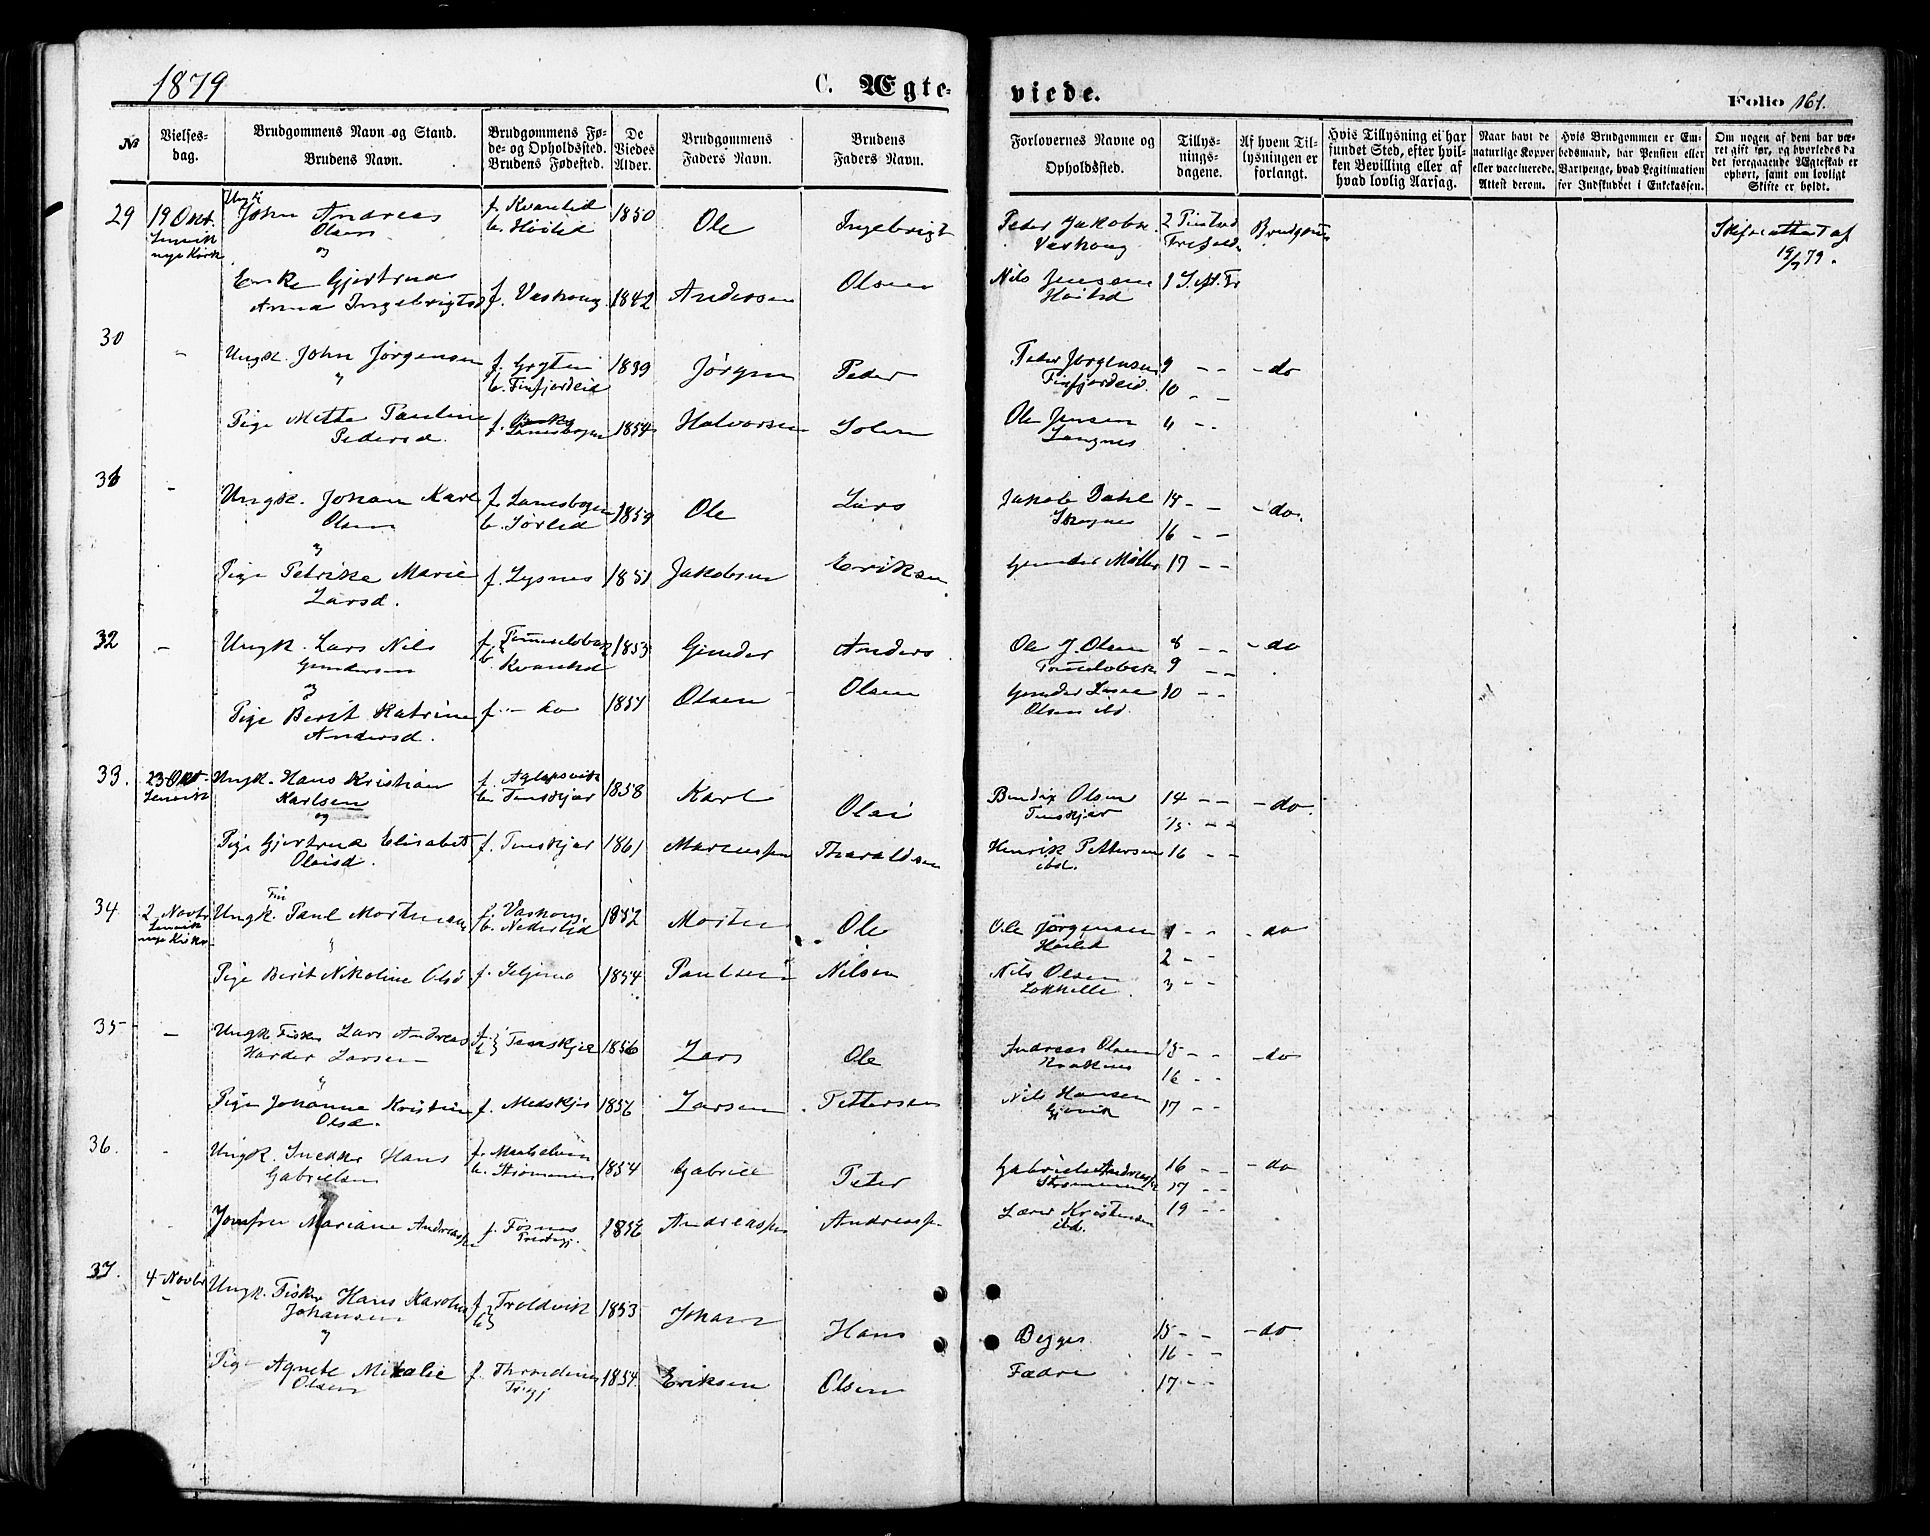 1879
C. Ægte-
viede.
Folio 161.
№
Vielses-
dag.
Brudgommens Navn og Stand.
Brudens Navn.
Brudgommens Fø-
de- og Opholdssted.
Brudens Fødested.
De
Viedes
Alder.
Brudgommens
Faders Navn.
Brudens
Faders Navn.
Forlovernes Navne og
Opholdssted.
Tillys-
nings-
dagene.
Af hvem Til-
lysningen er
forlangt.
Hvis Tillysning ei har
fundet Sted, efter hvil-
ken Bevilling eller af
hvad lovlig Aarsag.
Naar havt de
naturlige Kopper
eller vaccinerede.
Attest derom.
Hvis Brudgommen er Em-
bedsmand, har Pension eller
Vartpenge, hvad Legitimation
for Indskuddet i Enkekassen.
Om nogen af dem har væ-
ret gift før, og hvorledes da
det foregaaende Ægteskab er
ophørt, samt om lovligt
Skifte er holdt.
29
19 Okt.
Lenvik
nye Kirke
Ungk.
John Andreas
Olsen
og
Enke Gjertrud
Anna Ingebrigtsd
f. Kvanlid
b. Höilid
f. Vaskoug
1850
1842
Ole
Andersen
Ingebrigt
Olsen
Peder Jakobs.
Vaskoug
Nils Jensen
Höilid
1 Sept. Tr
Brudgom
Skifteattest af
19/7 79.
30
Ungk. John Jørgensen
"
Pige Mette Pauline
Pedersd.
f. Grytin
b. Finfjordeid
f. Lanesbogen
1839
1854
Jørgen
Halvorsen
Peder
Solem
Peder Jørgensen
Finfjordeid.
Ole Jensen
Langnes
9 - -
10 - -
- do
31
Ungk. Johan Karl
Olsen
og
Pige Petrike Marie
Larsd.
f. Lanesbogen
b. Sørlid
f. Lysnes
1859
1851
Ole
Jakobsen
Lars
Eriksen
Jakob Dahl
Gunder Møller
- -
16 - -
17 - -
- do.
32
Ungk. Lars Nils
Gundersen
og
Pige Berit Katrine
Andersd.
b. Kvanlid
f. - do
1853
1857
Gunder
Olsen
Anders
Olsen
Ole J. Olsen
Gunder Lasse
Olsen ibd.
8 - -
9 - -
10 - -
- do
33.
23 Okt.
Lenvik
Ungk. Hans Kristian
Karlsen
og
Pige Gjertrud Elisabet
Olaisd.
f. Aglapsvik
b. Finskjær
f. Finskjær
1858
1861
Karl
Marcussen
Olai
Tharaldsen
Bendix Olsen
Finskjær
Henrik Pettersen
ibd.
14 - -
15 - -
16 - -
- do.
34
2 Novbr
Lenvik
nye Kirke
Fin
Ungk. Paul Mortensen
"
Pige Berit Nikoline Olsd
f. Vaskoug
b. Nederlid
f. Seljemo
1852
1854
Morten
Paulsen
Ole
Nilsen
Ole Jørgensen
Höilid
Nils Olsen
1 - -
2 - -
3 - -
- do
35
-
Ungk. Fisker Lars Andreas
Harder Larsen
"
Pige Johanne Kristine
Olsd.
f. Medskjer
1856
1856
Lars
Larsen
Ole
Pettersen
Andreas Olsen
Nils Hansen
Gjøvik
15 - -
16 - -
17 - -
- do
36.
Ungk. Snedker Hans
Gabrielsen
"
Jomfru Mariane Andreassen
f. Maalselven
b. Strømmen
f. Fosnes
1854
Gabriel
Andreassen
Peter
Andreassen
Gabriel Andreassen
Strømmen
Lærer Kristensen
ibd.
16 - -
17 - -
19 - -
- do
37.
4 Novbr
-
Ungk. Fisker Hans Karolus
Johansen
"
Pige Agnete Mikalie
Olsen
f. } Troldvik
b. }
1853
1854.
Johan
Eriksen
Hans
Olsen
Begges
Fædre
15 - -
16 - -
17 - -
- do